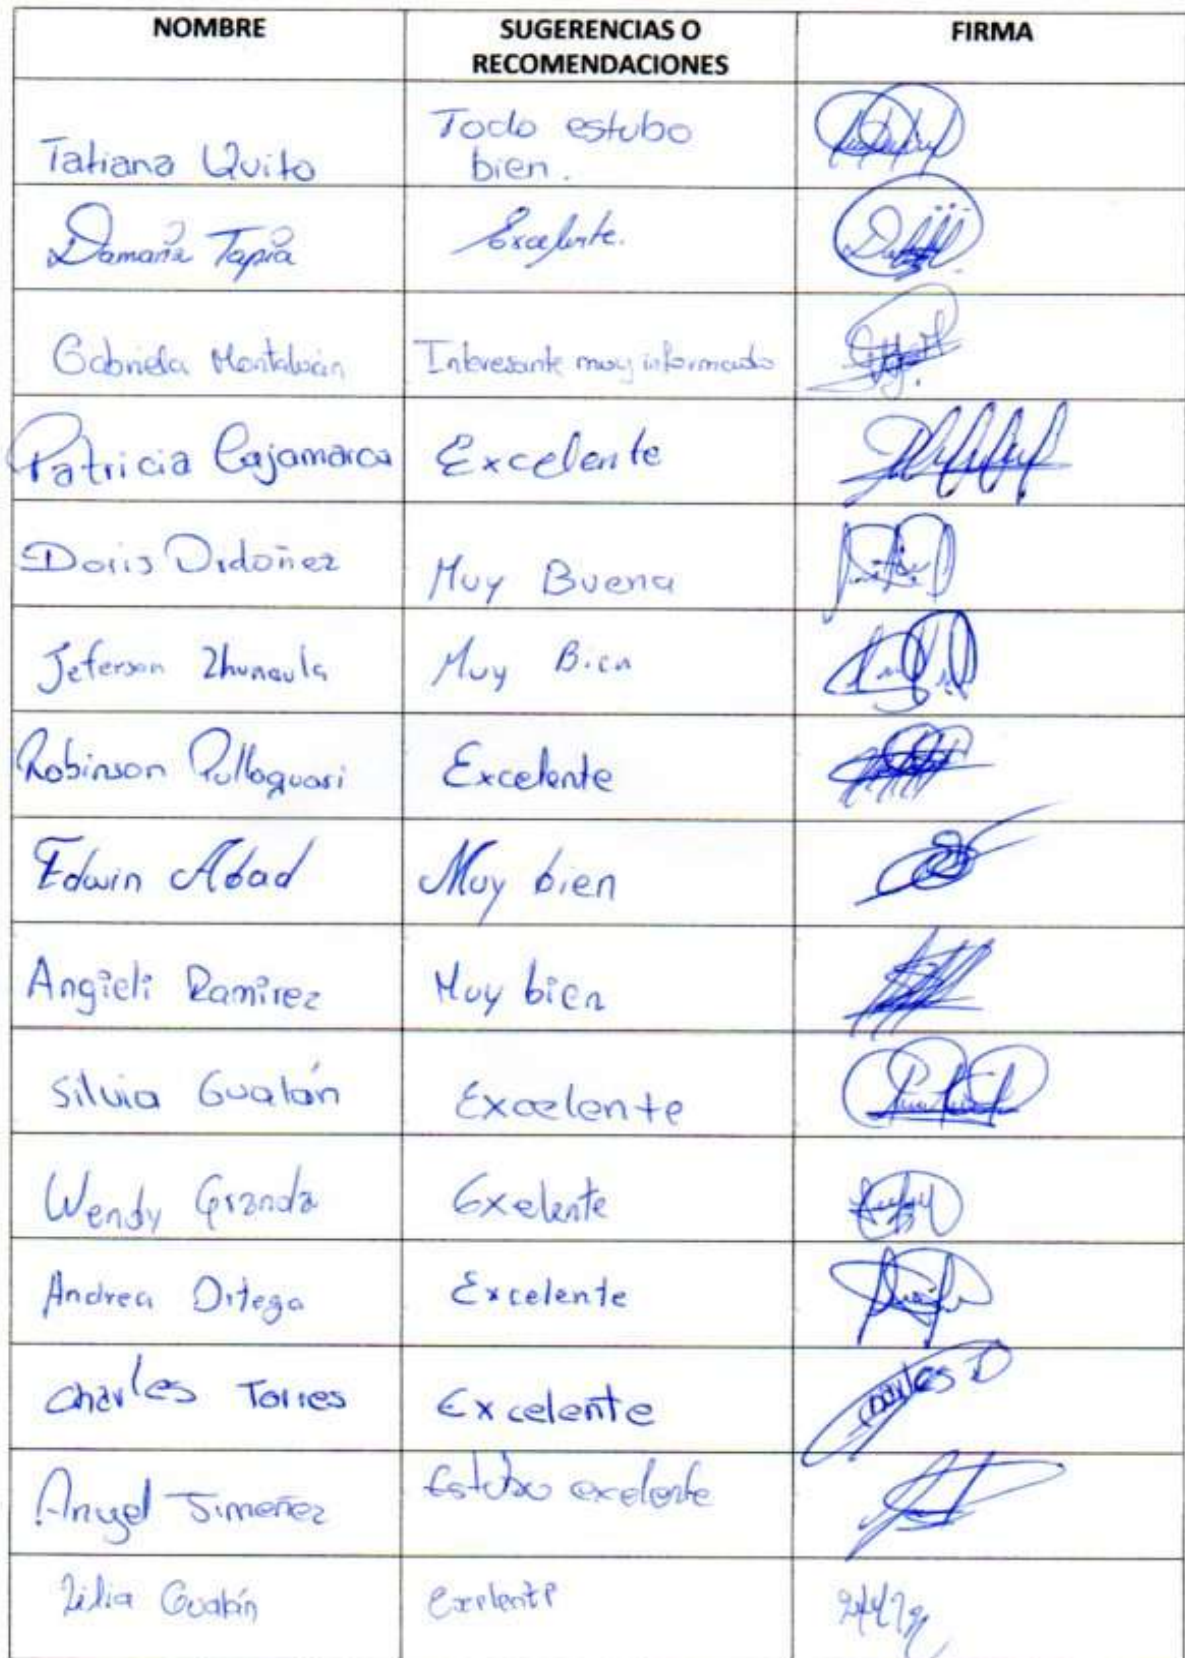 NOMBRE SUGERENCIAS O RECOMENDACIONES FIRMA
Tatiana Quito Todo estubo bien.
Damaris Tapia Excelente.
Gabriela Montalván Interesante muy informado
Patricia Cajamarca Excelente
Doris Ordoñez Muy Buena
Jeferson Zhunaula Muy Bien
Robinson Pullaguari Excelente
Edwin Abad Muy bien
Angieli Ramirez Muy bien
Silvia Gualán Excelente
Wendy Granda Exelente
Andrea Ortega Excelente
Charles Torres Excelente
Angel Jimeñez Estubo exelente
Zilia Gualán Exelente